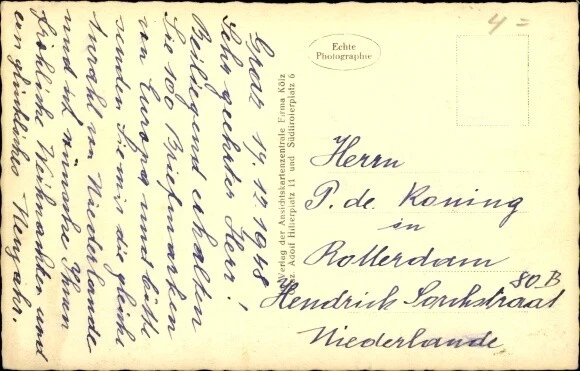 Graz 19.12.1948
Sehr geehrter Herr!
Beiliegend erhalten
Sie 100 Briefmarken
von Europa und bitte
senden Sie mir die gleiche
Anzahl von Niederlande
und ich wünsche Ihnen
fröhliche Weihnachten und
ein glückliches Neujahr.
Verlag der Ansichtskartenzentrale Firma Kölz
Graz, Adolf Hitlerplatz 11 und Südtirolerplatz 6
Echte
Photographie
4 =
Herrn
P. de. Koning
in
Rotterdam
80 B
Hendrick Sorchstraat
Niederlande